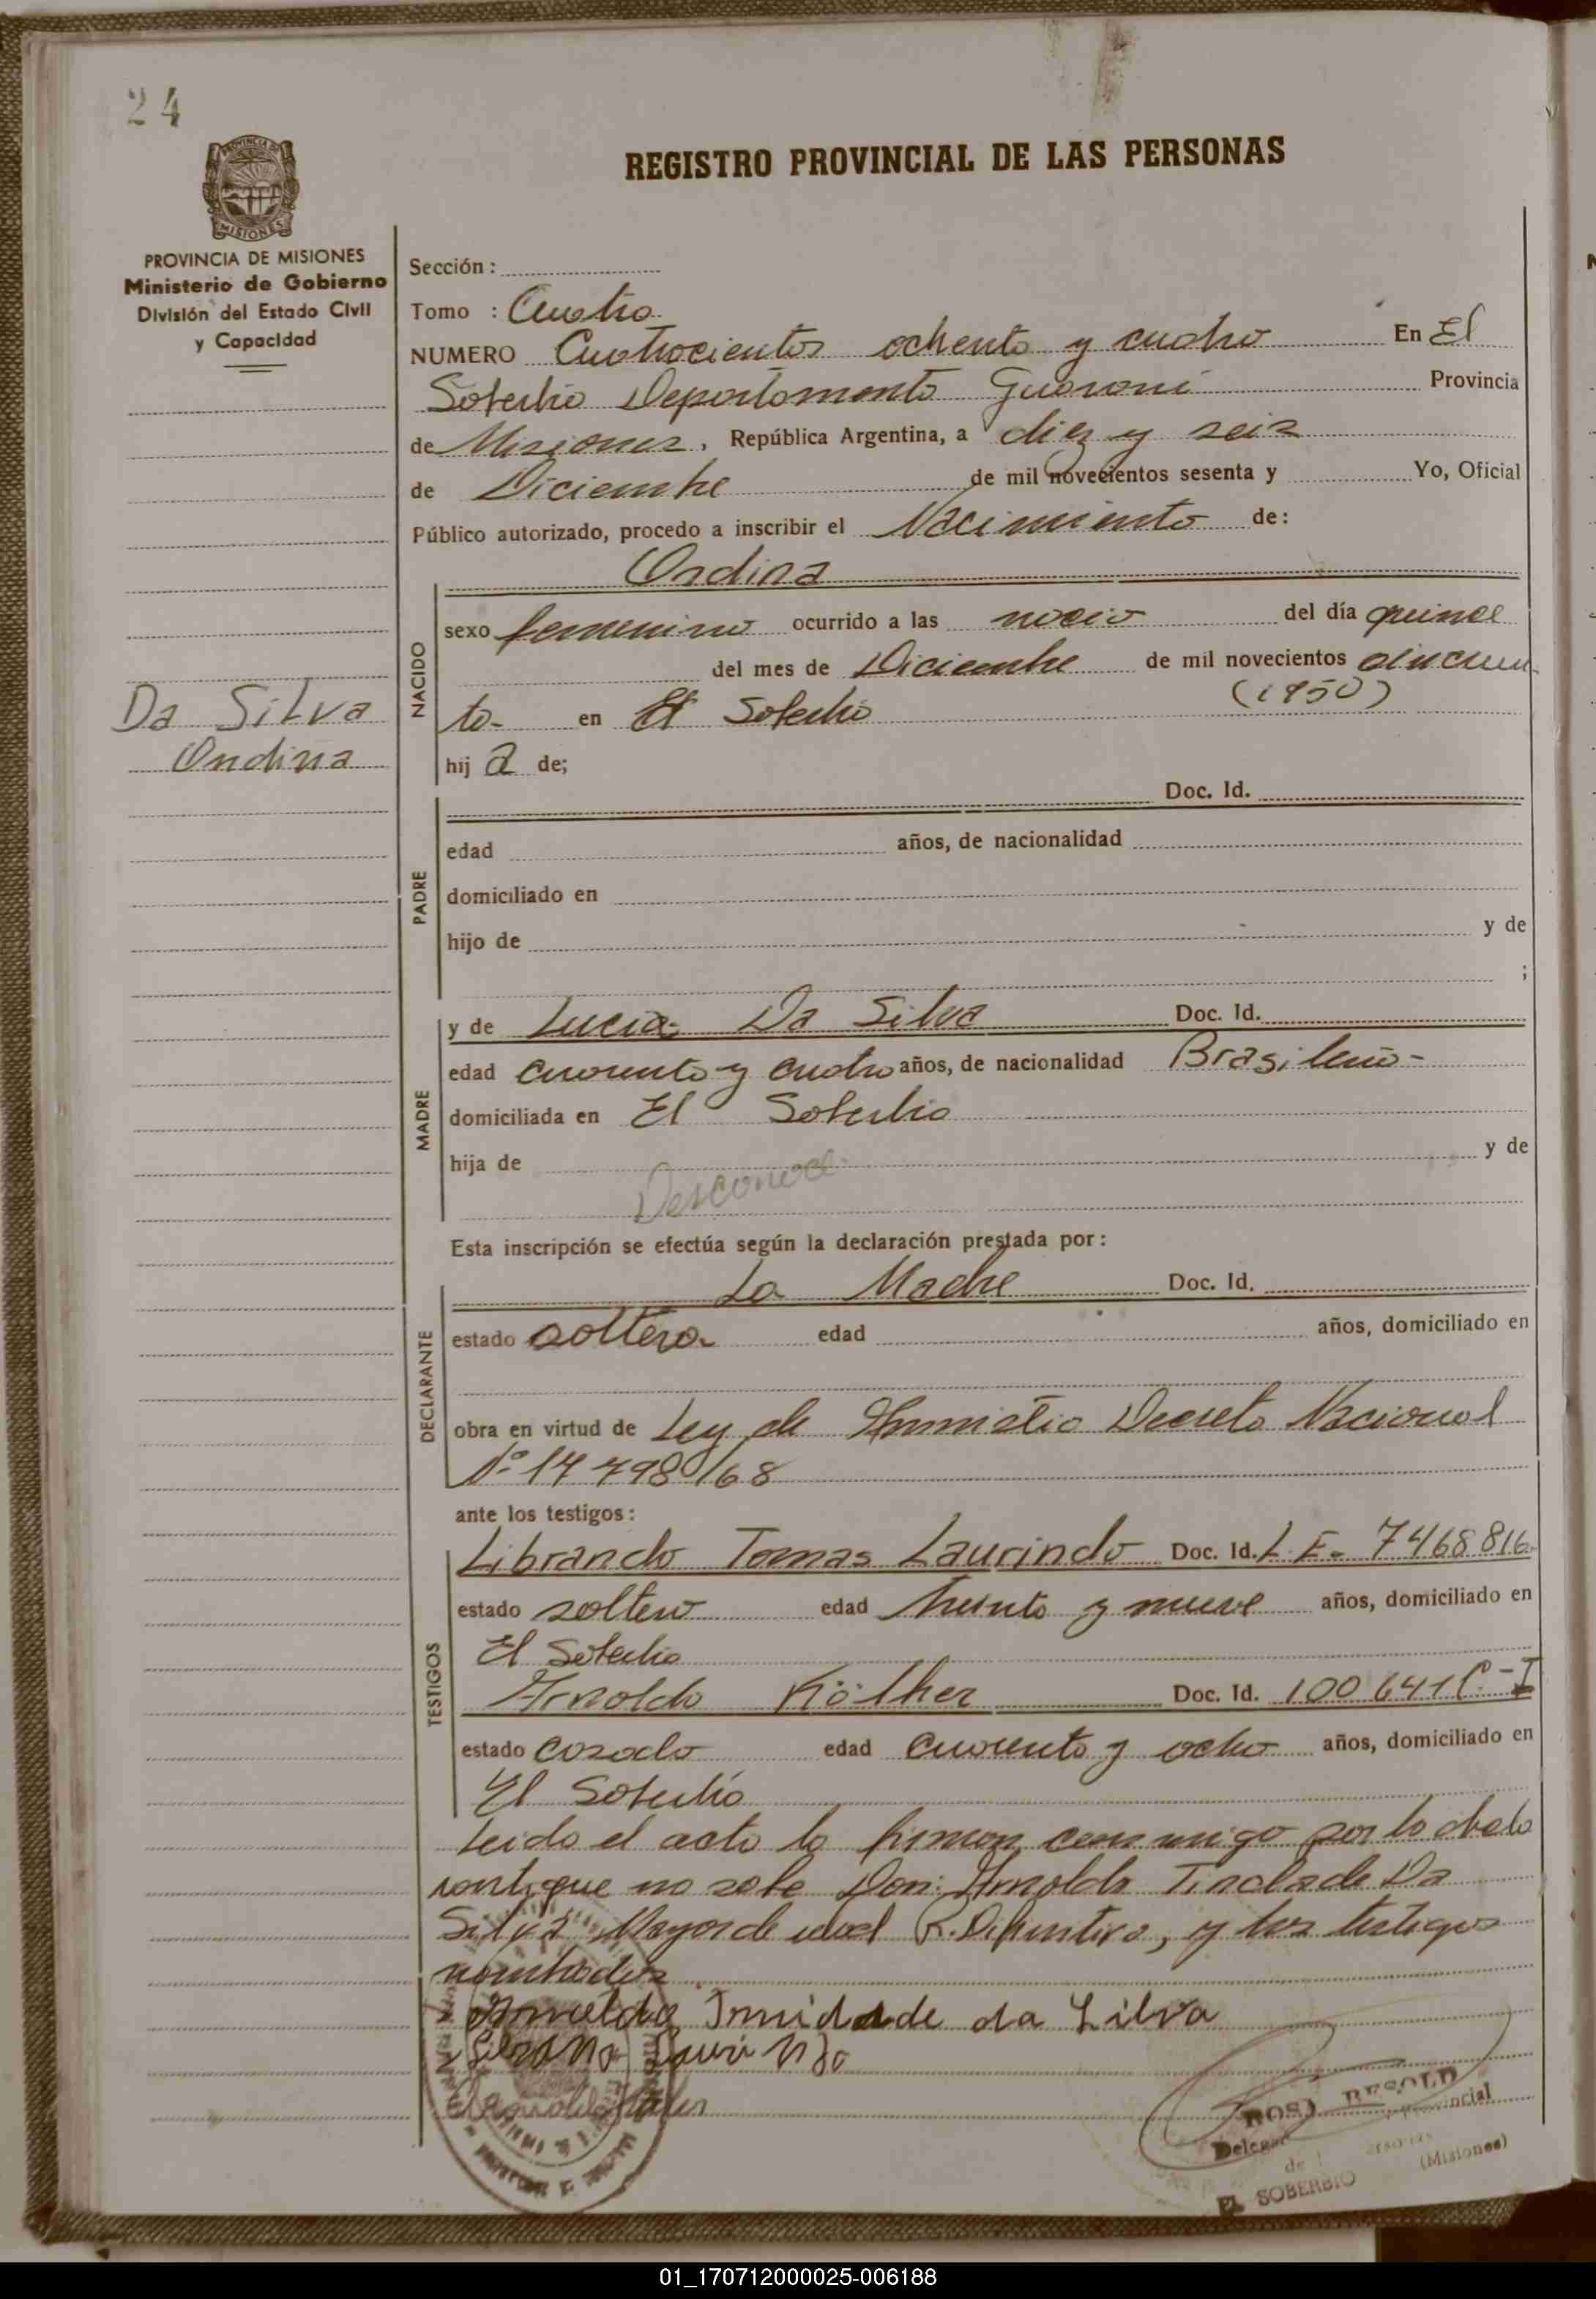 24
REGISTRO PROVINCIAL DE LAS PERSONAS
PROVINCIA DE MISIONES
Ministerio de Gobierno
División del Estado Civil
y Capacidad
Da Silva
Ondina
Sección:
Tomo : Cuatro
NUMERO Cuatrocientos ochenta y cuatro En El
Soberbio Departamento Guarani Provincia
de Misiones, República Argentina, a diez y seis
de Diciembre de mil novecientos sesenta y Yo, Oficial
Público autorizado, procedo a inscribir el Nacimiento de:
Ondina
NACIDO
sexo femenino ocurrido a las del día quince
del mes de Diciembre de mil novecientos cincuen
ta- en El Soberbio (1950)
hij a de;
PADRE
Doc. Id.
edad años, de nacionalidad
domiciliado en
hijo de y de
;
MADRE
y de Lucia Da Silva Doc. Id.
edad cuarenta y cuatro años, de nacionalidad Brasileña-
domiciliada en El Soberbio
hija de y de
Desconoce
Esta inscripción se efectúa según la declaración prestada por:
DECLARANTE
La Madre Doc. Id.
estado soltera edad años, domiciliado en
obra en virtud de Ley de Amnistia Decreto Nacional
Nº 17 798/68
ante los testigos:
TESTIGOS
Librando Tomas Laurindo Doc. Id. L.E. 7468816
estado soltero edad treinta y nueve años, domiciliado en
El Soberbio
Arnoldo Kölher Doc. Id. 100641 C-I
estado casado edad cuarenta y ocho años, domiciliado en
El Soberbio
Leida el acta la firman conmigo por la decla
rante que no sabe Don: Arnoldo Da
Silva Mayor de edad y los testigos
nombrados
da Silva
RESOLD
Delega
de
(Misiones)
EL SOBERBIO
01_170712000025-006188